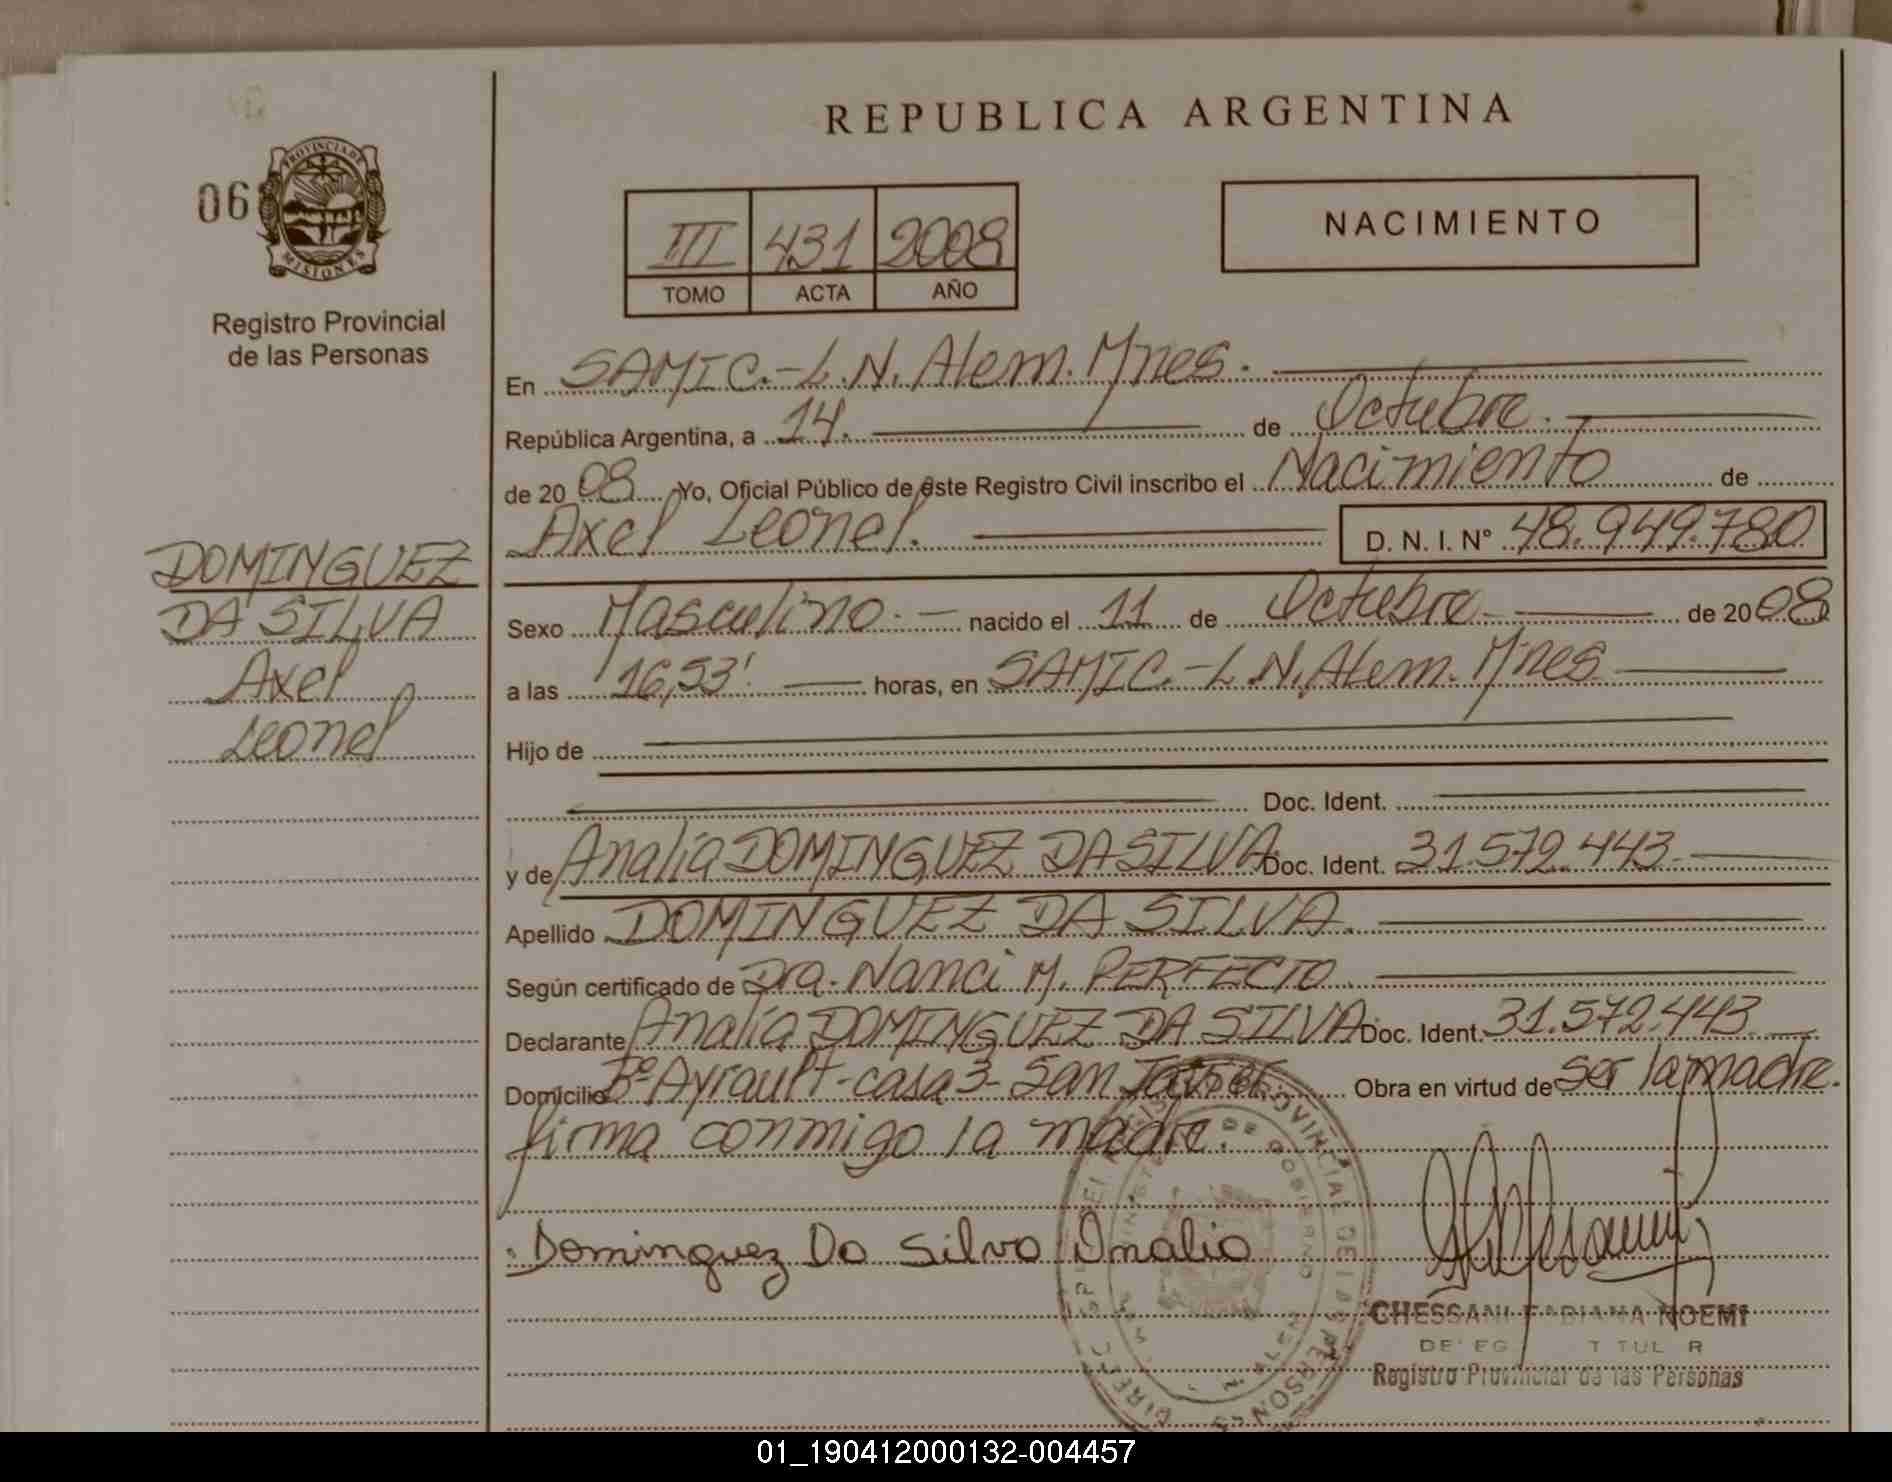 REPUBLICA ARGENTINA
06
PROVINCIA DE
MISIONES
Registro Provincial
de las Personas
III 431 2008
TOMO ACTA AÑO
NACIMIENTO
En SAMIC.-L.N. Alem. Mnes.
República Argentina, a 14. de Octubre.
de 20 08 Yo, Oficial Público de este Registro Civil inscribo el Nacimiento de
Axel Leonel. D. N. I. N° 48.949.780
DOMINGUEZ
DA SILVA
Axel
Leonel
Sexo Masculino.- nacido el 11 de Octubre de 20 08
a las 16,53' horas, en SAMIC.-L.N. Alem. Mnes
Hijo de
Doc. Ident.
y de Analía DOMINGUEZ DA SILVA Doc. Ident. 31.572.443.
Apellido DOMINGUEZ DA SILVA.
Según certificado de Dra. Nanci M. PERFECTO.
Declarante Analía DOMINGUEZ DA SILVA Doc. Ident. 31.572.443
Domicilio B° Ayrault-casa 3- San Javier. Obra en virtud de ser la madre.
firma conmigo la madre.
Dominguez Da Silva Analia
CHESSANI FABIANA NOEMI
Registro Provincial de las Personas
01_190412000132-004457